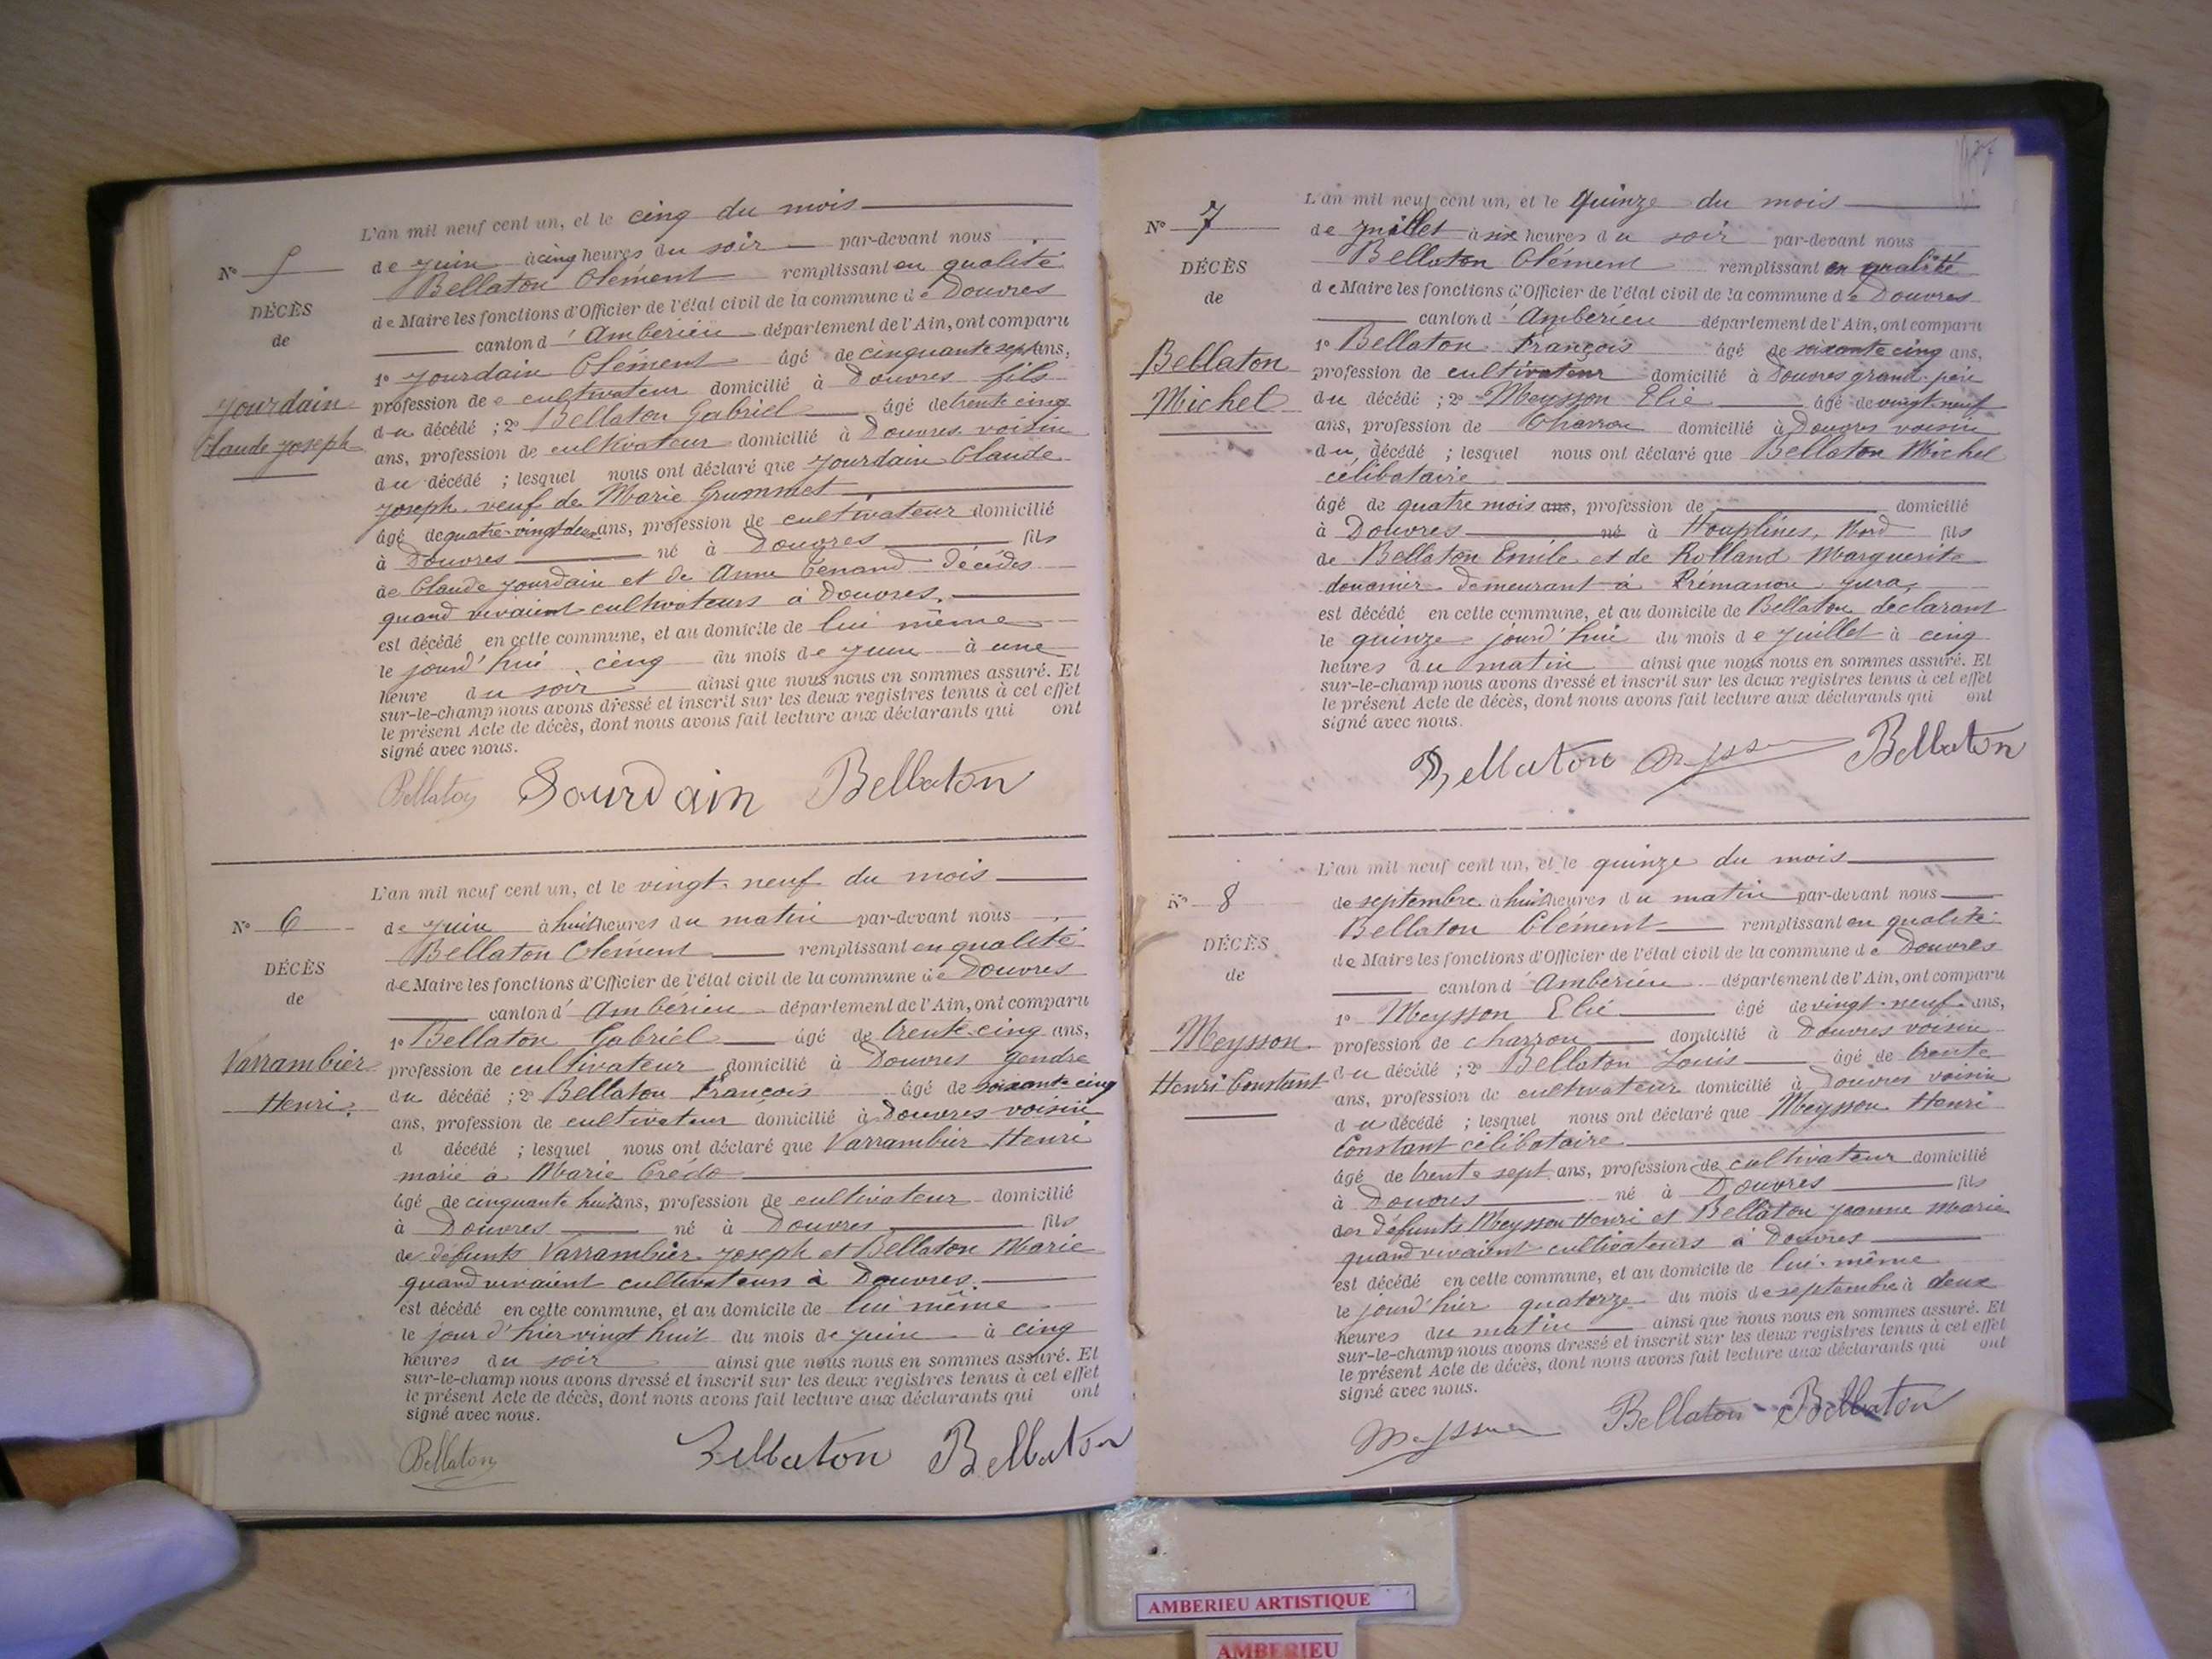 L'an mil neuf cent un, et le cinq du mois
N° 5
de juin à cinq heures du soir par-devant nous
Bellaton Clément remplissant en qualité
DÉCÈS
de Maire les fonctions d'Officier de l'état civil de la commune de Douvres
de
canton d'Ambérieu département de l'Ain, ont comparu
1° Jourdain Clément âgé de cinquante sept ans,
Jourdain
profession de cultivateur domicilié à Douvres fils
Claude Joseph
du décédé ; 2° Bellaton Gabriel âgé de trente cinq
ans, profession de cultivateur domicilié à Douvres voisin
du décédé ; lesquel nous ont déclaré que Jourdain Claude
Joseph veuf de Marie Grummet
âgé de quatre-vingt deux ans, profession de cultivateur domicilié
à Douvres né à Douvres fils
de Claude Jourdain et de Anne Tenand décédés
quand vivaient cultivateurs à Douvres.
est décédé en cette commune, et au domicile de lui même
le jourd'hui cinq du mois de juin à une
heure du soir ainsi que nous nous en sommes assuré. Et
sur-le-champ nous avons dressé et inscrit sur les deux registres tenus à cet effet
le présent Acte de décès, dont nous avons fait lecture aux déclarants qui ont
signé avec nous.
Bellaton Jourdain Bellaton
L'an mil neuf cent un, et le vingt-neuf du mois
N° 6
de juin à huit heures du matin par-devant nous
Bellaton Clément remplissant en qualité
DÉCÈS
de Maire les fonctions d'Officier de l'état civil de la commune de Douvres
de
canton d'Ambérieu département de l'Ain, ont comparu
1° Bellaton Gabriel âgé de trente-cinq ans,
Varrambier
profession de cultivateur domicilié à Douvres gendre
Henri
du décédé ; 2° Bellaton François âgé de soixante cinq
ans, profession de cultivateur domicilié à Douvres voisin
d décédé ; lesquel nous ont déclaré que Varrambier Henri
marié à Marie Crédo
âgé de cinquante huit ans, profession de cultivateur domicilié
à Douvres né à Douvres fils
de défunts Varrambier Joseph et Bellaton Marie
quand vivaient cultivateurs à Douvres.
est décédé en cette commune, et au domicile de lui même
le jour d'hier vingt huit du mois de juin à cinq
heures du soir ainsi que nous nous en sommes assuré. Et
sur-le-champ nous avons dressé et inscrit sur les deux registres tenus à cet effet
le présent Acte de décès, dont nous avons fait lecture aux déclarants qui ont
signé avec nous.
Bellaton Bellaton Bellaton
L'an mil neuf cent un, et le quinze du mois
N° 7
de juillet à six heures du soir par-devant nous
Bellaton Clément remplissant en qualité
DÉCÈS
de Maire les fonctions d'Officier de l'état civil de la commune de Douvres
de
canton d'Ambérieu département de l'Ain, ont comparu
1° Bellaton François âgé de soixante cinq ans,
Bellaton
profession de cultivateur domicilié à Douvres grand-père
Michel
du décédé ; 2° Meysson Elie âgé de vingt-neuf
ans, profession de Charron domicilié à Douvres voisin
du décédé ; lesquel nous ont déclaré que Bellaton Michel
célibataire
âgé de quatre mois ans, profession de domicilié
à Douvres né à Houplines, Nord fils
de Bellaton Emile et de Rolland Marguerite
douanier demeurant à Prémanon Jura,
est décédé en cette commune, et au domicile de Bellaton déclarant
le quinze jourd'hui du mois de juillet à cinq
heures du matin ainsi que nous nous en sommes assuré. Et
sur-le-champ nous avons dressé et inscrit sur les deux registres tenus à cet effet
le présent Acte de décès, dont nous avons fait lecture aux déclarants qui ont
signé avec nous.
Bellaton Meysson Bellaton
L'an mil neuf cent un, et le quinze du mois
N° 8
de septembre à huit heures du matin par-devant nous
Bellaton Clément remplissant en qualité
DÉCÈS
de Maire les fonctions d'Officier de l'état civil de la commune de Douvres
de
canton d'Ambérieu département de l'Ain, ont comparu
1° Meysson Elie âgé de vingt-neuf ans,
Meysson
profession de charron domicilié à Douvres voisin
Henri Constant
du décédé ; 2° Bellaton Louis âgé de trente
ans, profession de cultivateur domicilié à Douvres voisin
du décédé ; lesquel nous ont déclaré que Meysson Henri
Constant célibataire
âgé de trente sept ans, profession de cultivateur domicilié
à Douvres né à Douvres fils
des défunts Meysson Henri et Bellaton Jeanne Marie
quand vivaient cultivateurs à Douvres
est décédé en cette commune, et au domicile de lui-même
le jourd'hier quatorze du mois de septembre à deux
heures du matin ainsi que nous nous en sommes assuré. Et
sur-le-champ nous avons dressé et inscrit sur les deux registres tenus à cet effet
le présent Acte de décès, dont nous avons fait lecture aux déclarants qui ont
signé avec nous.
Meysson Bellaton Bellaton
AMBERIEU ARTISTIQUE
AMBERIEU